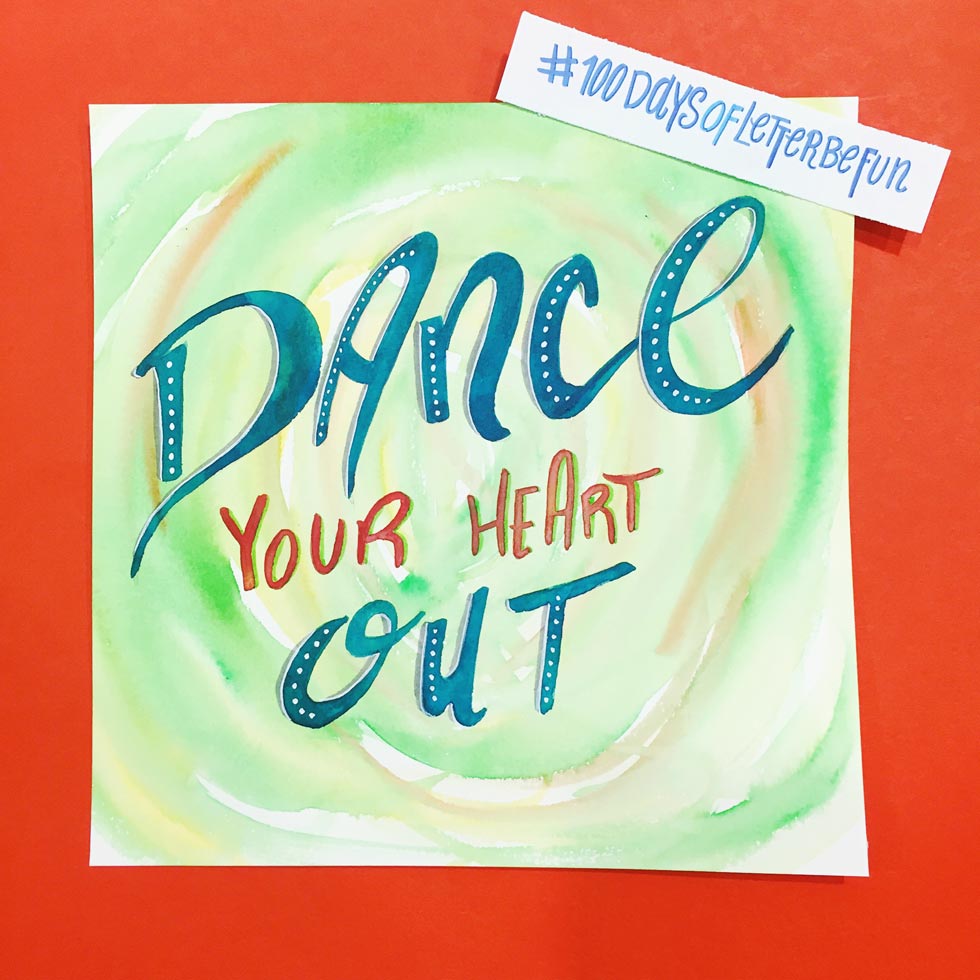 #100DaysOfLetterBeFun
DANCE
YOUR HEART
OUT